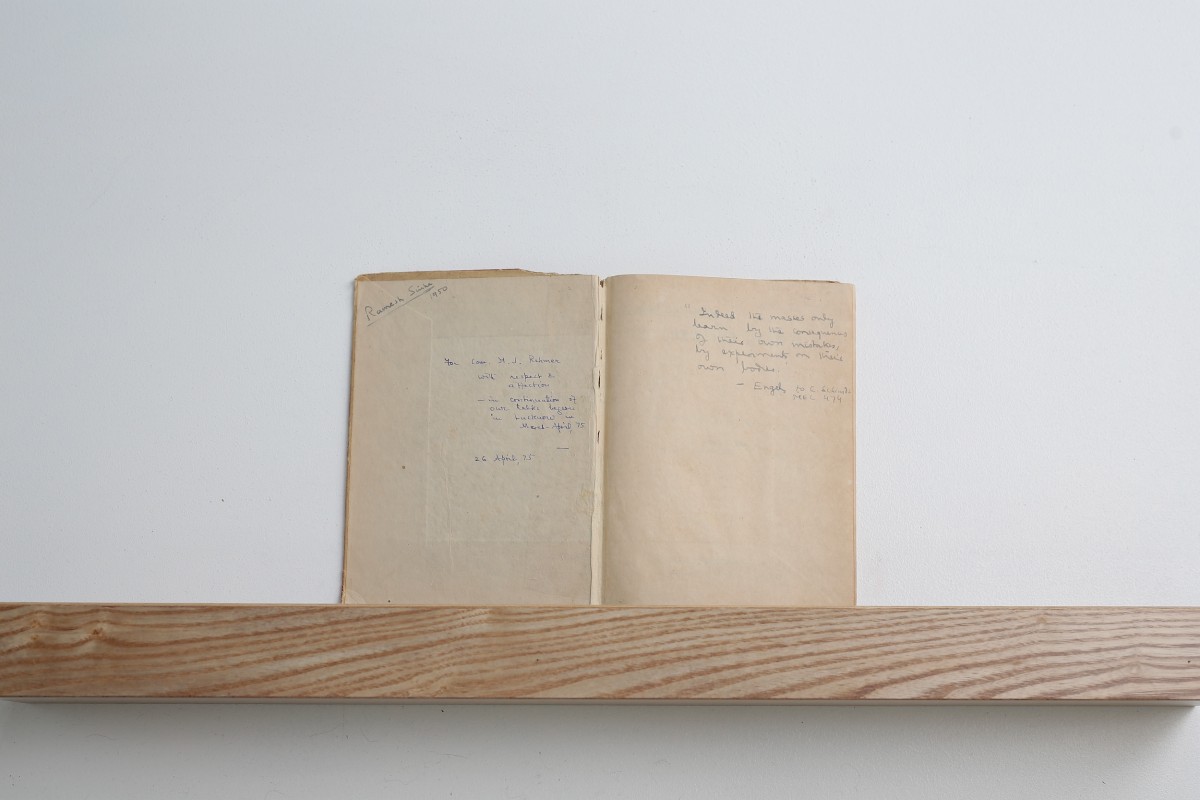 Ramesh Sinha
1950
To Com M. J. Rehman
with respect &
affection
— in continuation of
our talks begun
in Lucknow in
March-April, 75
26 April, 75
" Indeed the masses only
learn by the consequences
of their own mistakes,
by experiments on their
own bodies.
— Engels to C. Schmidt
479